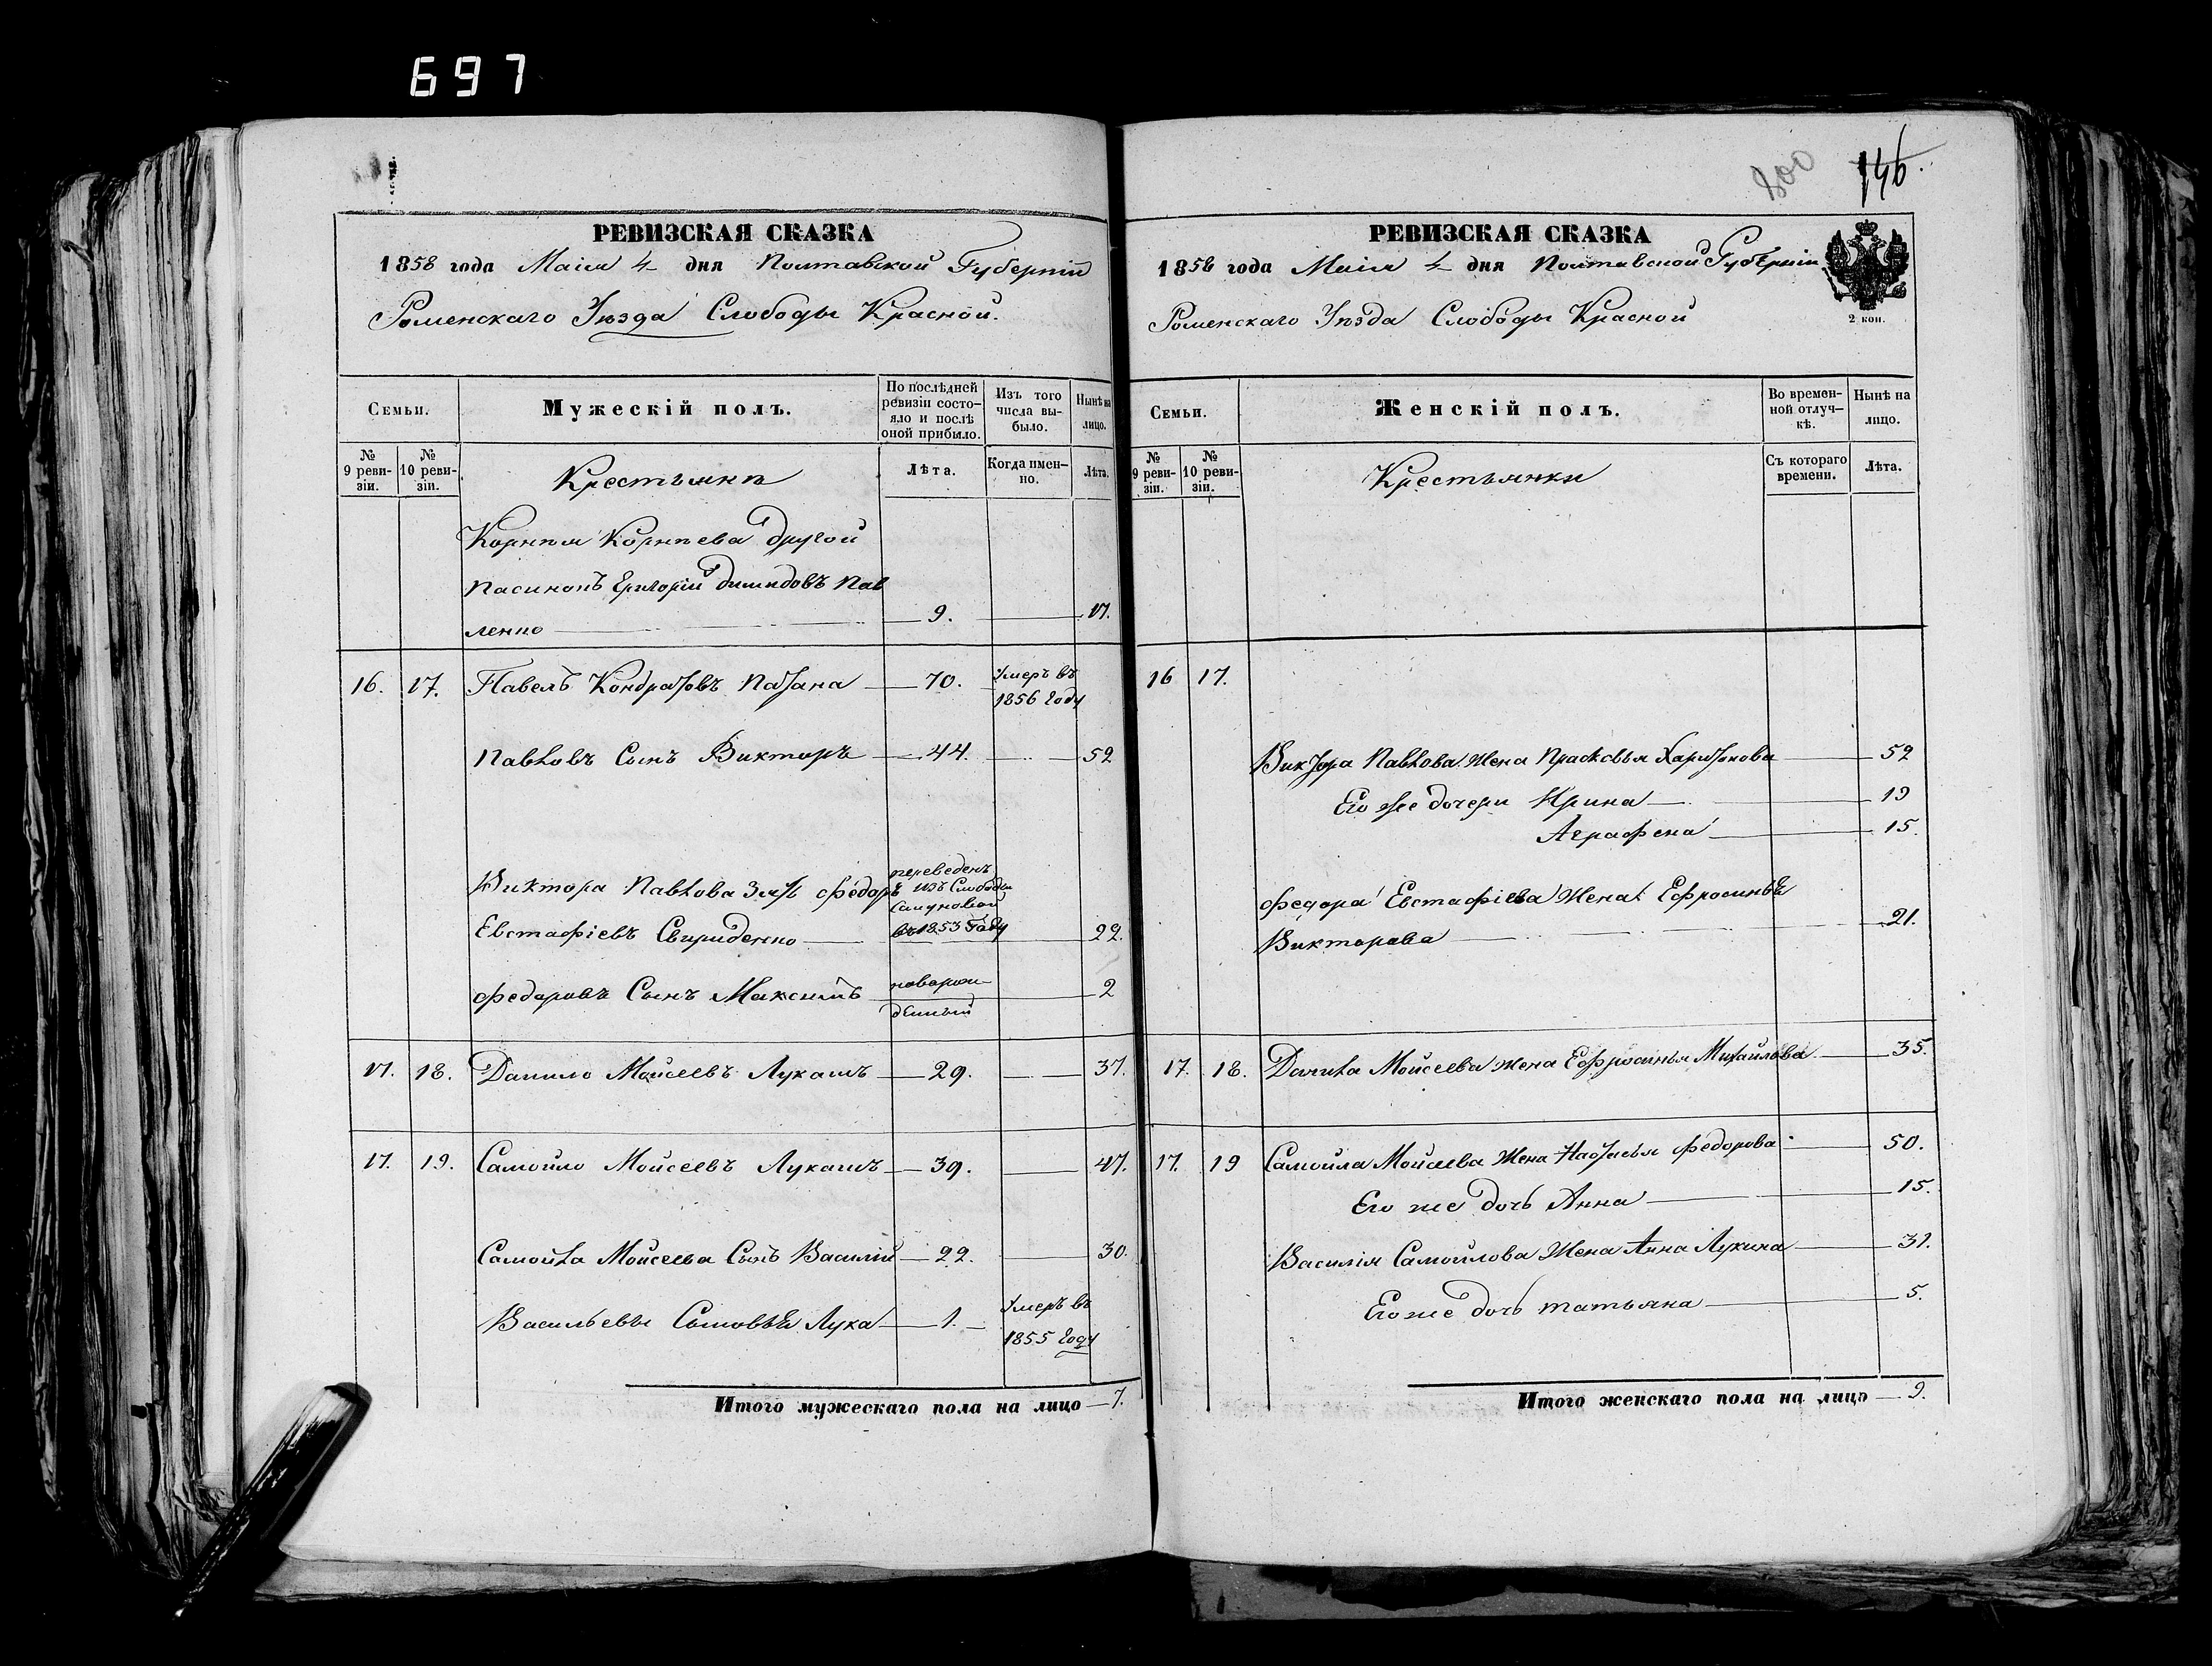 697
РЕВИЗСКАЯ СКАЗКА
1858 года Маія 4 дня Полтавской Губерніи
Роменскаго Уѣзда Слободы Красной.
Семьи.
Мужескій полъ.
По послѣдней
ревизіи состо-
яло и послѣ
оной прибыло.
Изъ того
числа вы-
было.
Нынѣ на
лицо.
№
9 реви-
зіи.
№
10 реви-
зіи.
Крестьянѣ
Лѣта.
Когда имен-
но.
Лѣта.
Корнѣя Корнѣева другой
пасинокъ Григорій Димидовъ Пав
ленко 9. 17.
16. 17. Павелъ Кондратовъ 70. Умеръ въ
1856 году
Павловъ Сынъ Викторъ 44. 52
Виктора Павлова Зять Федоръ переведенъ
изъ Слободы
Евстафіевъ Свириденко въ 1853 году 22.
Федоровъ Сынъ Максимъ новорож
денный 2
17. 18. Данило Мойсеевъ Лукашъ 29. 37.
17. 19. Самойло Мойсеевъ Лукашъ 39. 47.
Самойла Мойсеева Сынъ Василій 22. 30.
Васильевы Сыновья Лука 1. Умеръ въ
1855 году
Итого мужескаго пола на лицо 7.
800 146.
РЕВИЗСКАЯ СКАЗКА
1858 года Маія 4 дня Полтавской Губерніи
Роменскаго Уѣзда Слободы Красной
2 коп.
Семьи.
Женскій полъ.
Во времен-
ной отлуч-
кѣ.
Нынѣ на
лицо.
№
9 реви-
зіи.
№
10 реви-
зіи.
Крестьянки
Съ котораго
времени.
Лѣта.
16 17.
Виктора Павлова Жена Прасковья Харитонова 52
Его же дочери Ирина 19
Аграфена 15.
Федора Евстафіева Жена Ефросинья
Викторова 21.
17. 18. Данила Мойсеева жена Ефросинья Михайлова 35.
17. 19 Самойла Мойсеева Жена Настасья Федорова 50.
Его же дочь Анна 15.
Василія Самойлова Жена Анна Лукина 31.
Его же дочь татьяна 5.
Итого женскаго пола на лицо 9.